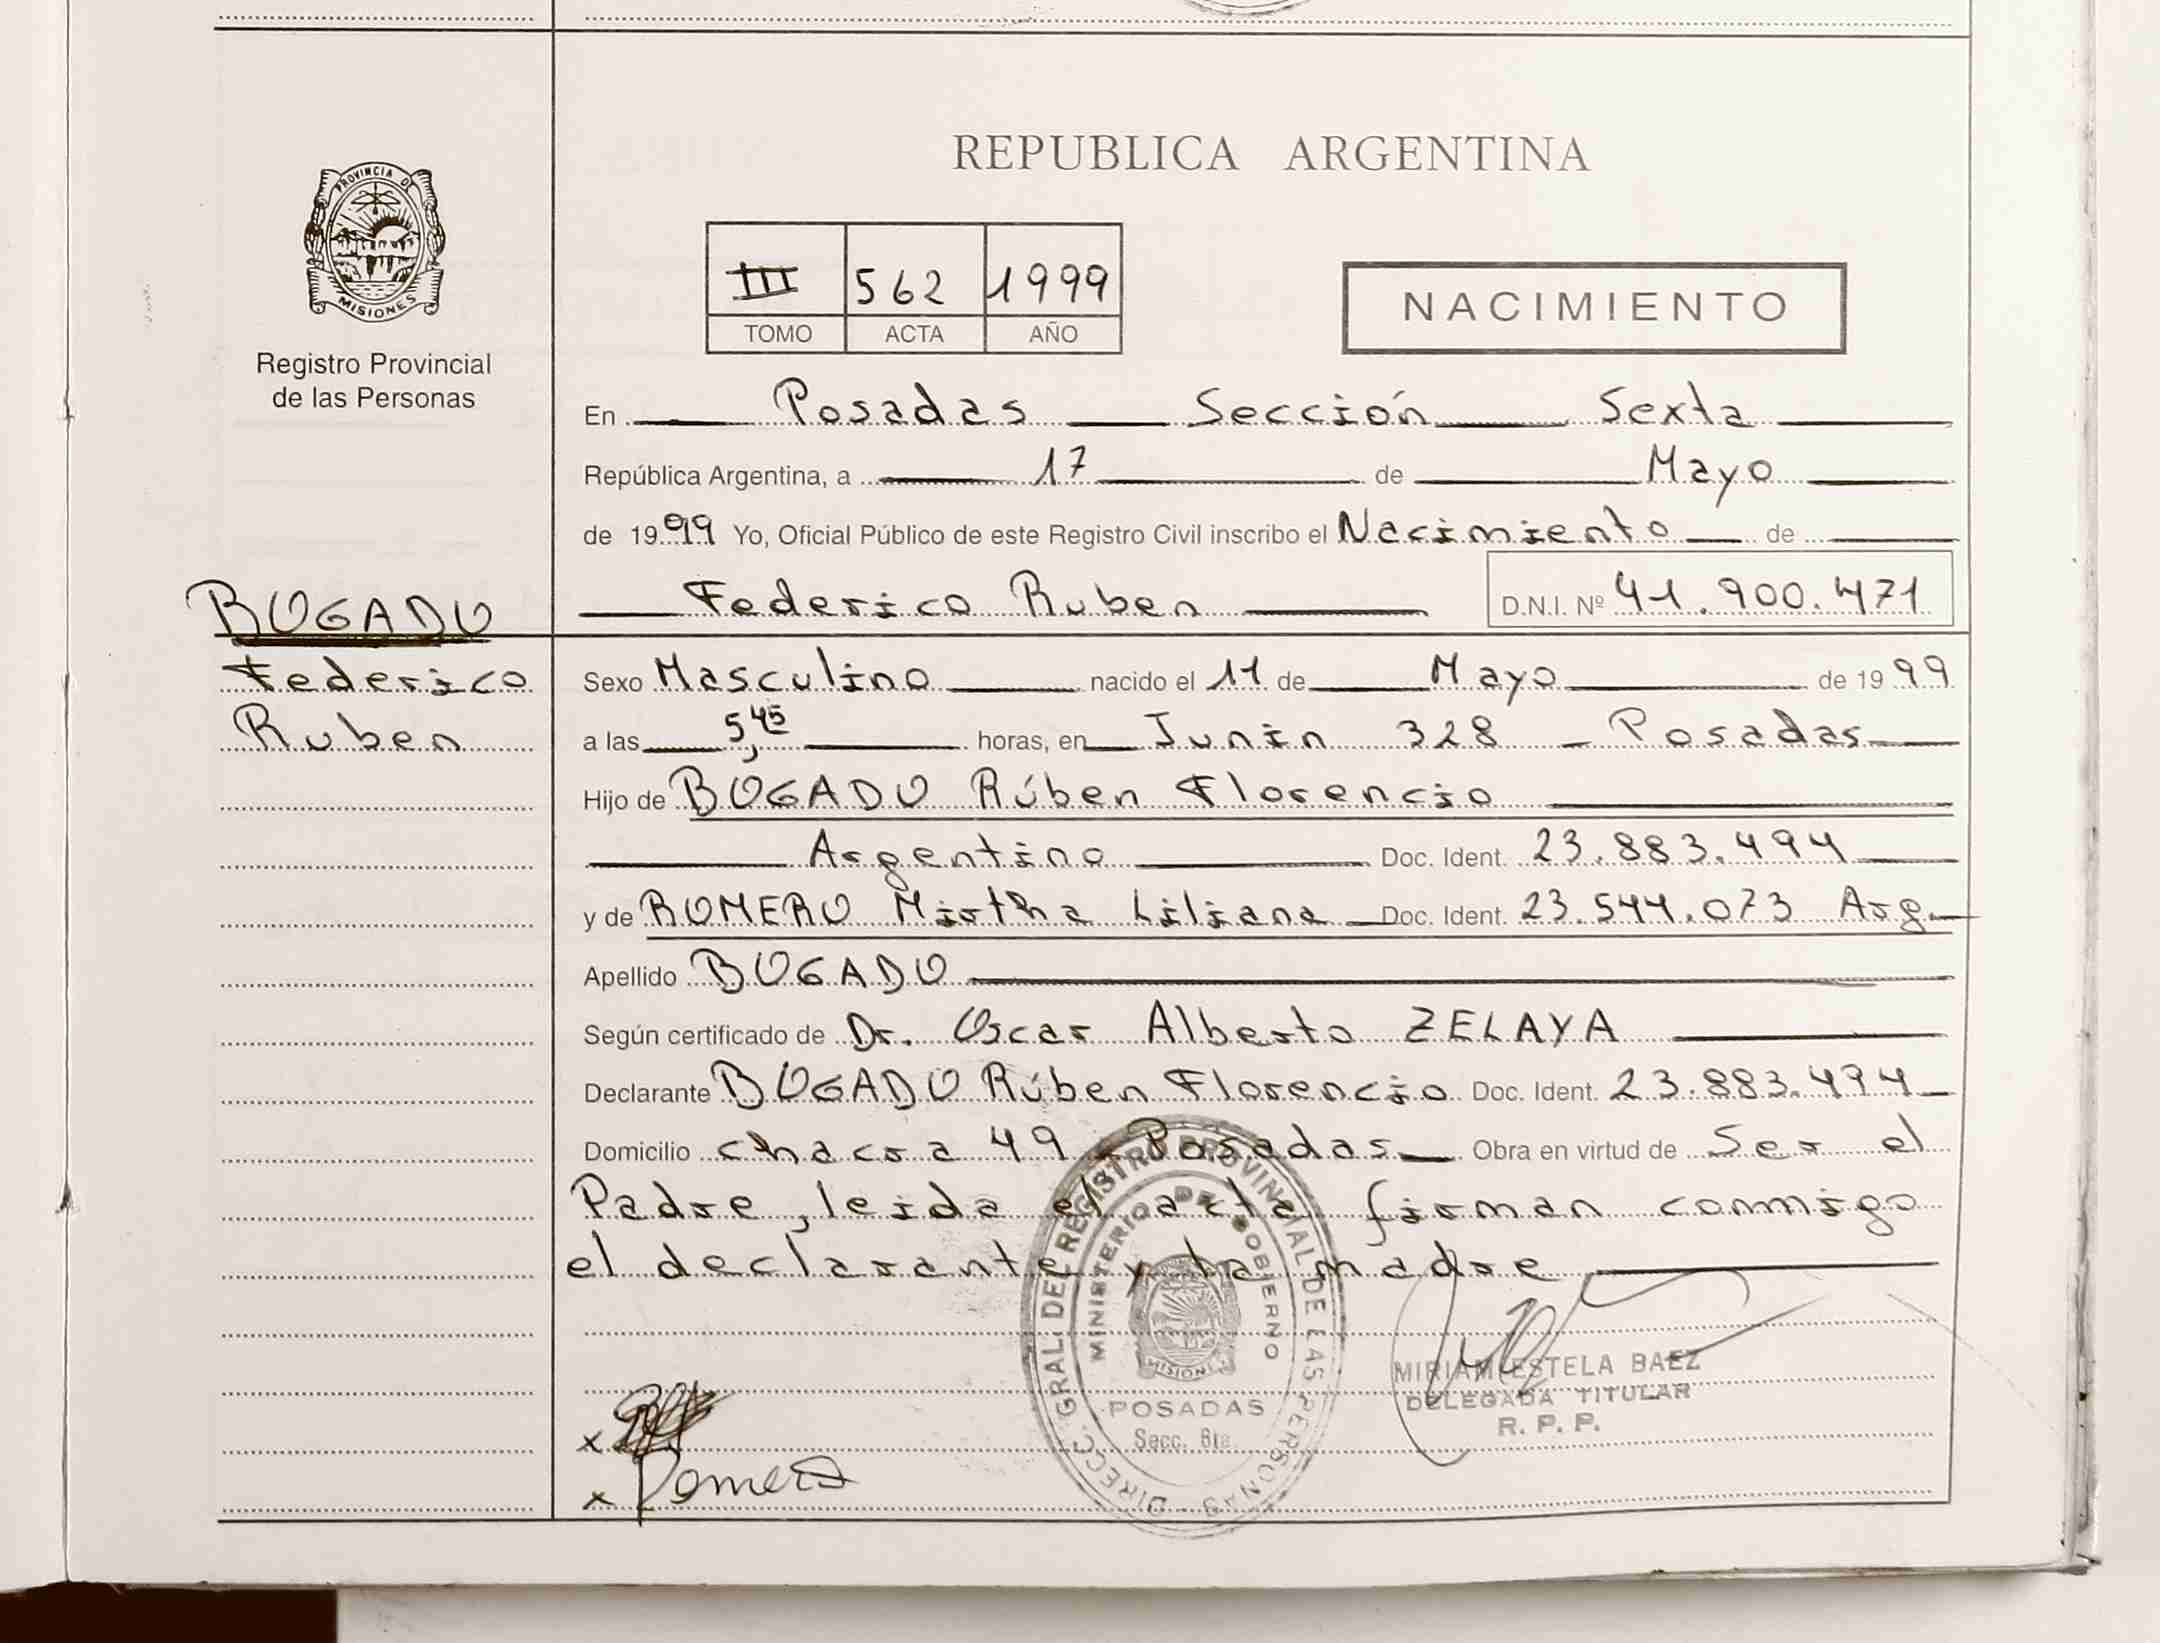 REPUBLICA ARGENTINA
PROVINCIA DE
MISIONES
Registro Provincial
de las Personas
III 562 1999
TOMO ACTA AÑO
NACIMIENTO
En Posadas Sección Sexta
República Argentina, a 17 de Mayo
de 1999 Yo, Oficial Público de este Registro Civil inscribo el Nacimiento de
BOGADO
Federico Ruben D.N.I. Nº 41.900.471
Federico
Ruben
Sexo Masculino nacido el 11 de Mayo de 1999
a las 5,45 horas, en Junin 328 - Posadas
Hijo de BOGADO Rúben Florencio
Argentino Doc. Ident. 23.883.494
y de ROMERO Mirtha Liliana Doc. Ident. 23.544.073 Arg.
Apellido BOGADO
Según certificado de Dr. Oscar Alberto ZELAYA
Declarante BOGADO Rúben Florencio Doc. Ident. 23.883.494
Domicilio chacra 49 - Posadas Obra en virtud de Ser el
Padre, leida el acta firman conmigo
el declarante y la madre
DIRECC. GRAL. DEL REGISTRO PROVINCIAL DE LAS PERSONAS
MINISTERIO DE GOBIERNO
MISIONES
POSADAS
Secc. 6ta.
MIRIAM ESTELA BAEZ
DELEGADA TITULAR
R. P. P.
x
x Romero